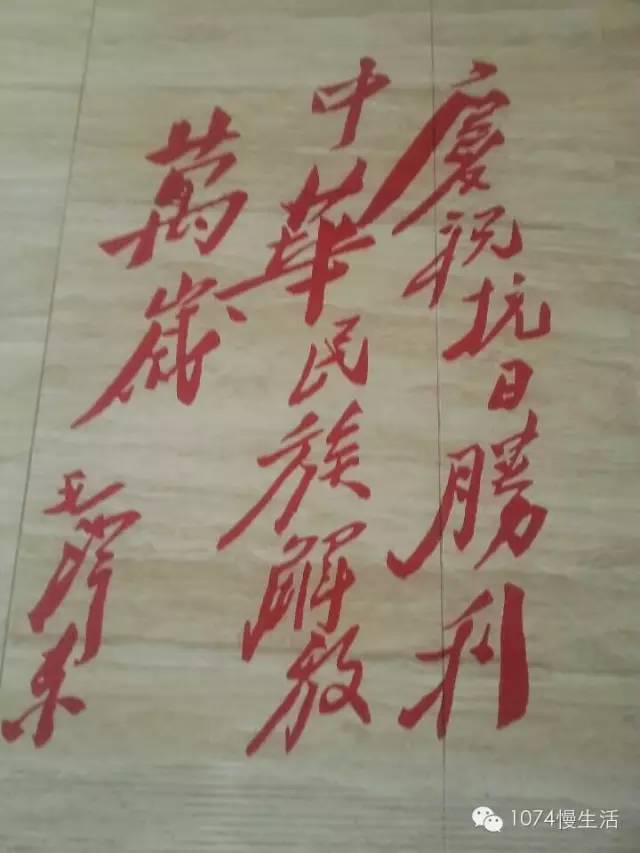 慶祝抗日勝利
中華民族解放
萬歲
毛澤东
1074慢生活